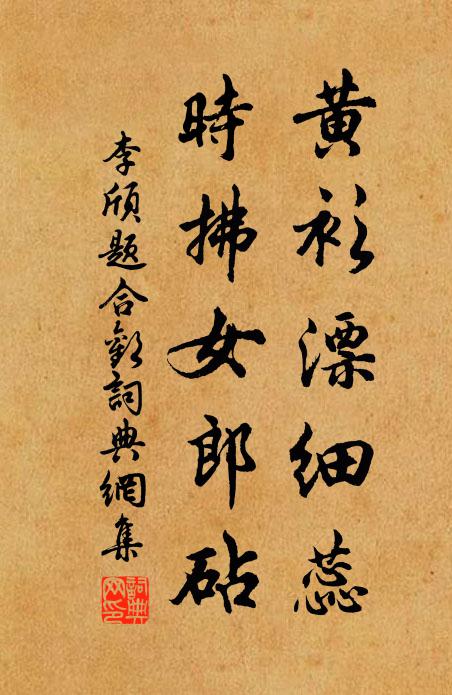 黄衫漂细蕊
時拂女郎砧
李頎題合歡詞典網集
詞典网印